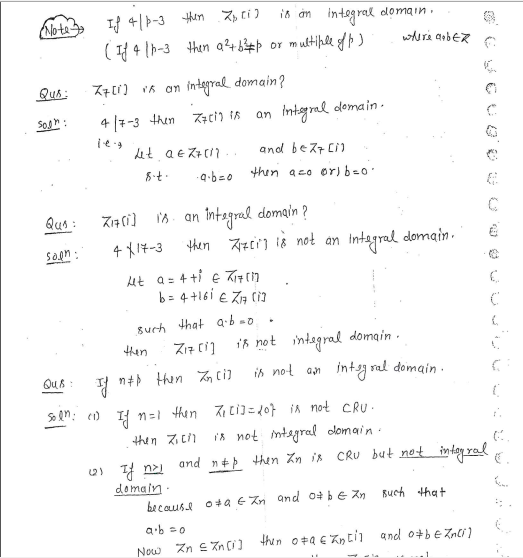 Note → If 4|p-3 then Zp[i] is an integral domain.
(If 4|p-3 then a²+b²≠p or multiple of p) where a,b∈Z
Qus: Z7[i] is an integral domain?
Soln: 4|7-3 then Z7[i] is an integral domain.
i.e.→
Let a ∈ Z7[i] and b ∈ Z7[i]
s.t. a·b=0 then a=0 or b=0.
Qus: Z17[i] is an integral domain?
Soln: 4∤17-3 then Z17[i] is not an integral domain.
Let a = 4+i ∈ Z17[i]
b = 4+16i ∈ Z17[i]
such that a·b=0.
then Z17[i] is not integral domain.
Qus: If n≠p then Zn[i] is not an integral domain.
Soln: (1) If n=1 then Z1[i]={0} is not CRU.
then Z1[i] is not integral domain.
(2) If n>1 and n≠p then Zn is CRU but not integral
domain.
because 0≠a ∈ Zn and 0≠b ∈ Zn such that
a·b=0
Now Zn ⊆ Zn[i] then 0≠a ∈ Zn[i] and 0≠b ∈ Zn[i]